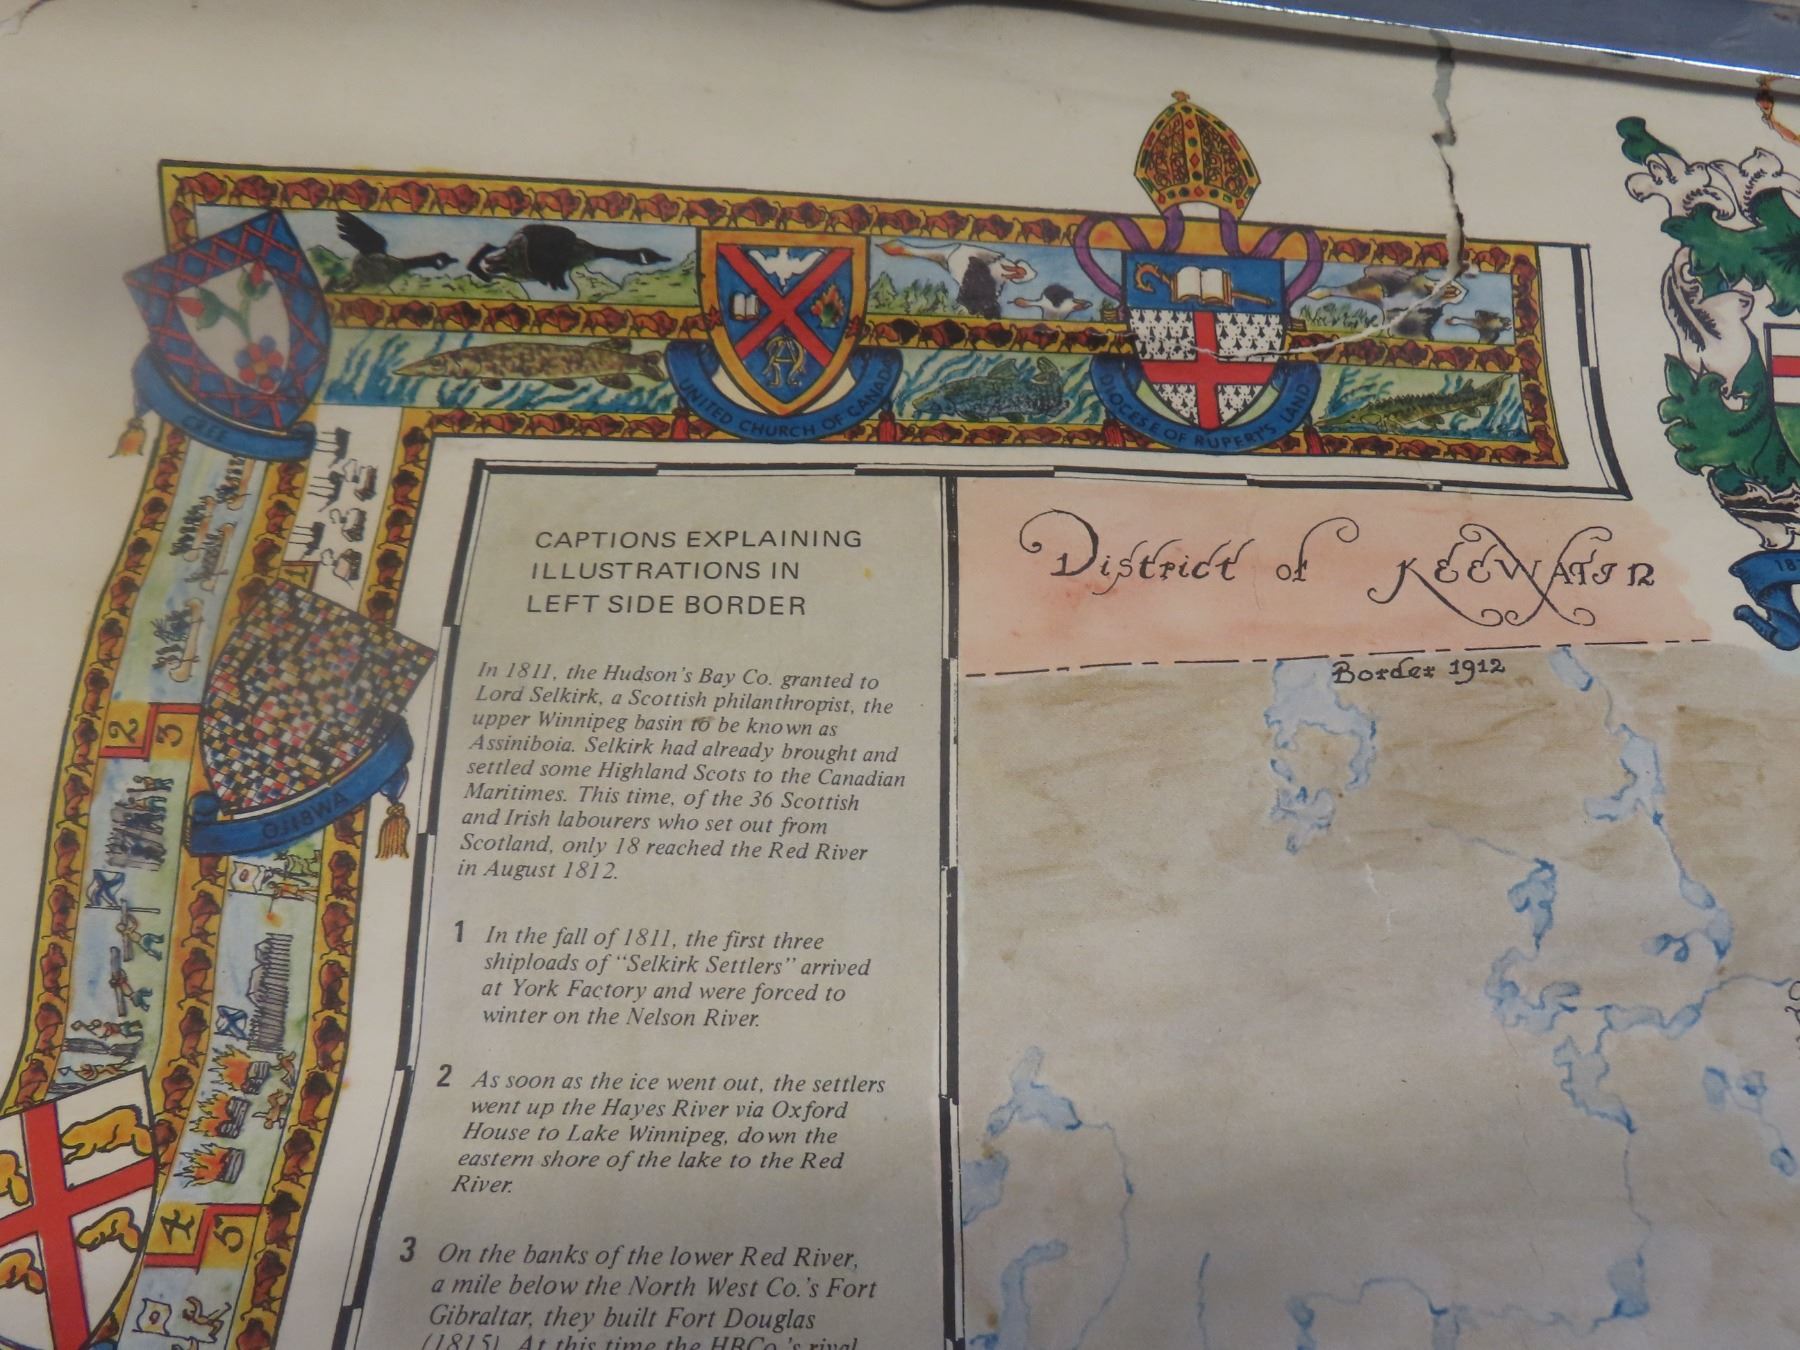 CREE
UNITED CHURCH OF CANADA
DIOCESE OF RUPERT'S LAND
OJIBWA
1
2
3
4
5
CAPTIONS EXPLAINING
ILLUSTRATIONS IN
LEFT SIDE BORDER
In 1811, the Hudson's Bay Co. granted to
Lord Selkirk, a Scottish philanthropist, the
upper Winnipeg basin to be known as
Assiniboia. Selkirk had already brought and
settled some Highland Scots to the Canadian
Maritimes. This time, of the 36 Scottish
and Irish labourers who set out from
Scotland, only 18 reached the Red River
in August 1812.
1 In the fall of 1811, the first three
shiploads of "Selkirk Settlers" arrived
at York Factory and were forced to
winter on the Nelson River.
2 As soon as the ice went out, the settlers
went up the Hayes River via Oxford
House to Lake Winnipeg, down the
eastern shore of the lake to the Red
River.
3 On the banks of the lower Red River,
a mile below the North West Co.'s Fort
Gibraltar, they built Fort Douglas
(1815). At this time the HBCo.'s rival
District of KEEWATIN
Border 1912